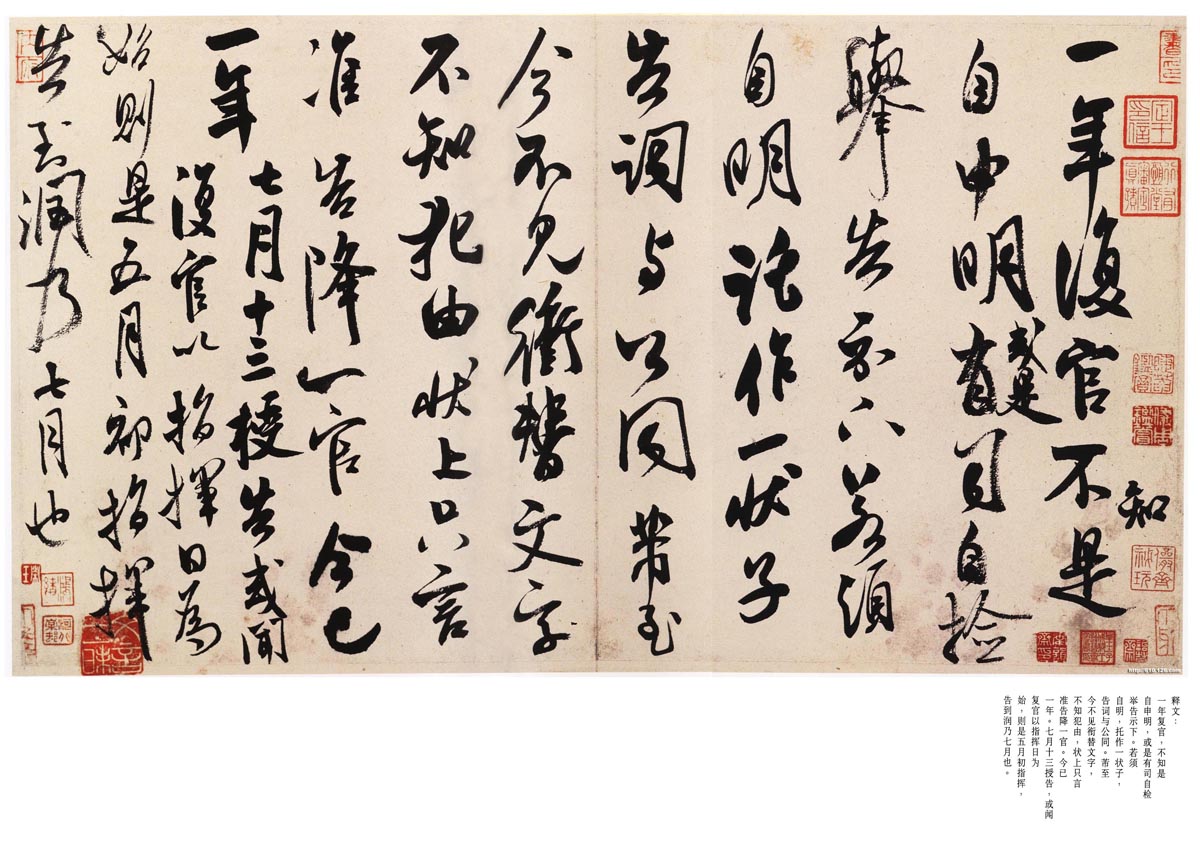 一年復官不是
知
自申明或是有司自檢
舉告示下若須
自明託作一状子
告詞与公同芾至
今不見銜替文字
不知犯由状上只言
准告降一官今已
一年七月十三授告或聞
復官以指揮日為
始則是五月初指揮
告到潤乃七月也
http://q10.126.com
释文：
一年复官，不知是
自申明，或是有司自检
举告示下。若须
自明，托作一状子，
告词与公同。芾至
今不见衔替文字，
不知犯由，状上只言
准告降一官。今已
一年。七月十三授告，或闻
复官以指挥日为
始，则是五月初指挥，
告到润乃七月也。